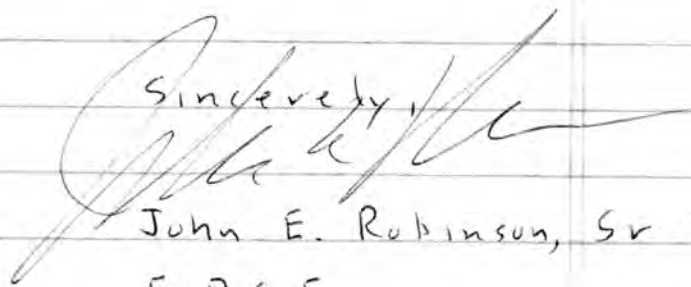 Sincerely,
John E. Robinson, Sr